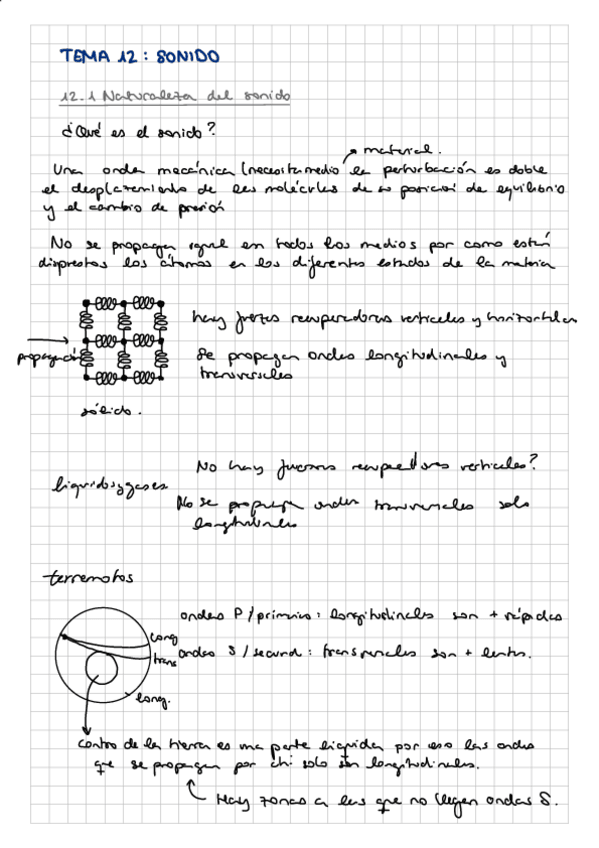 TEMA 12: SONIDO
12.1 Naturaleza del sonido
¿Qué es el sonido?
material.
Una onda mecánica (necesita medio la perturbación es doble
el desplazamiento de las moléculas de su posición de equilibrio
y el cambio de presión
No se propagan igual en todos los medios por como están
dispuestos los átomos en los diferentes estados de la materia
hay fuerzas recuperadoras verticales y horizontales
propagación
Se propagan ondas longitudinales y
transversales
sólido.
No hay fuerzas recuperadoras verticales?
liquidos y gases
No se propagan ondas transversales solo
longitudinales
terremotos
ondas P / primarias: longitudinales son + rápidas
long
trans
ondas S / secund: transversales son + lentas.
long.
Centro de la tierra es una parte liquida por eso las ondas
que se propagan por ahi solo son longitudinales.
Hay zonas a las que no llegan ondas S.